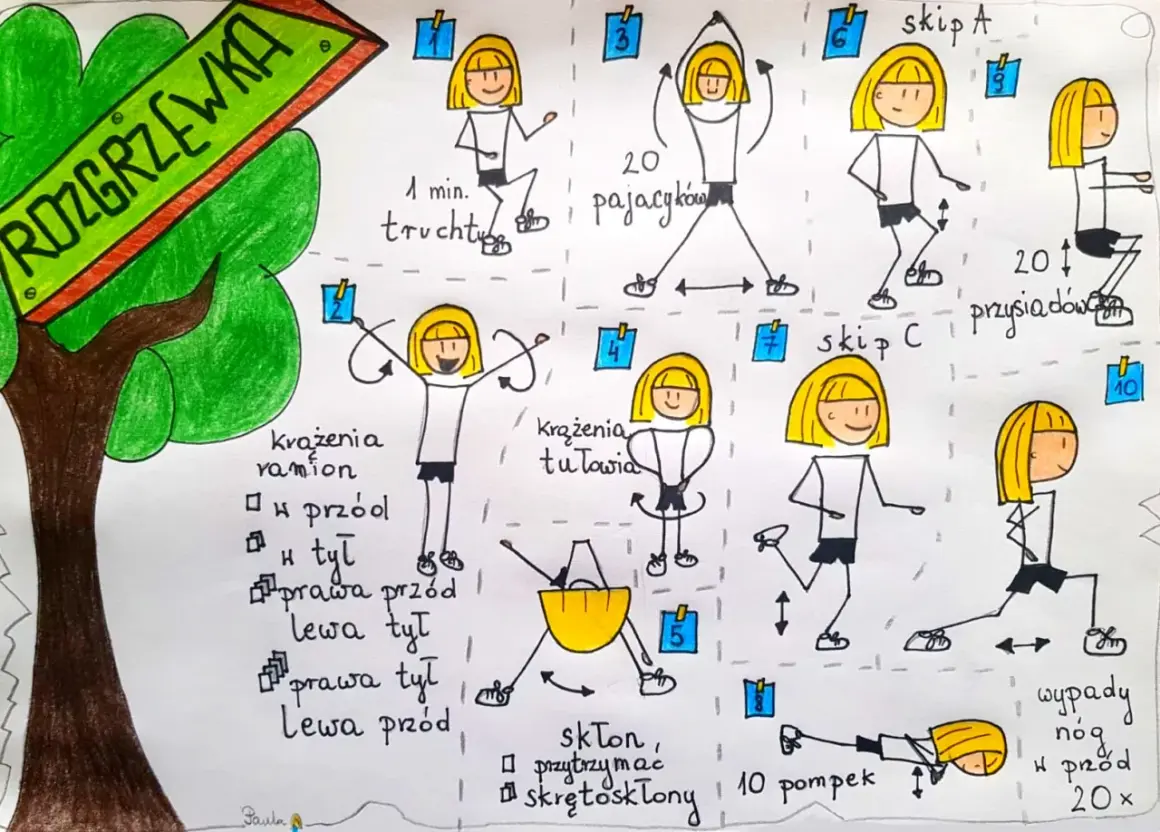 ROZGRZEWKA
1
1 min.
truchtu
2
krążenia
ramion
w przód
w tył
prawa przód
lewa tył
prawa tył
lewa przód
3
20
pajacyków
4
krążenia
tułowia
5
skłon
przytrzymać
skrętoskłony
6
skip A
7
skip C
8
10 pompek
9
20
przysiadów
10
wypady
nóg
w przód
20 x
Paula